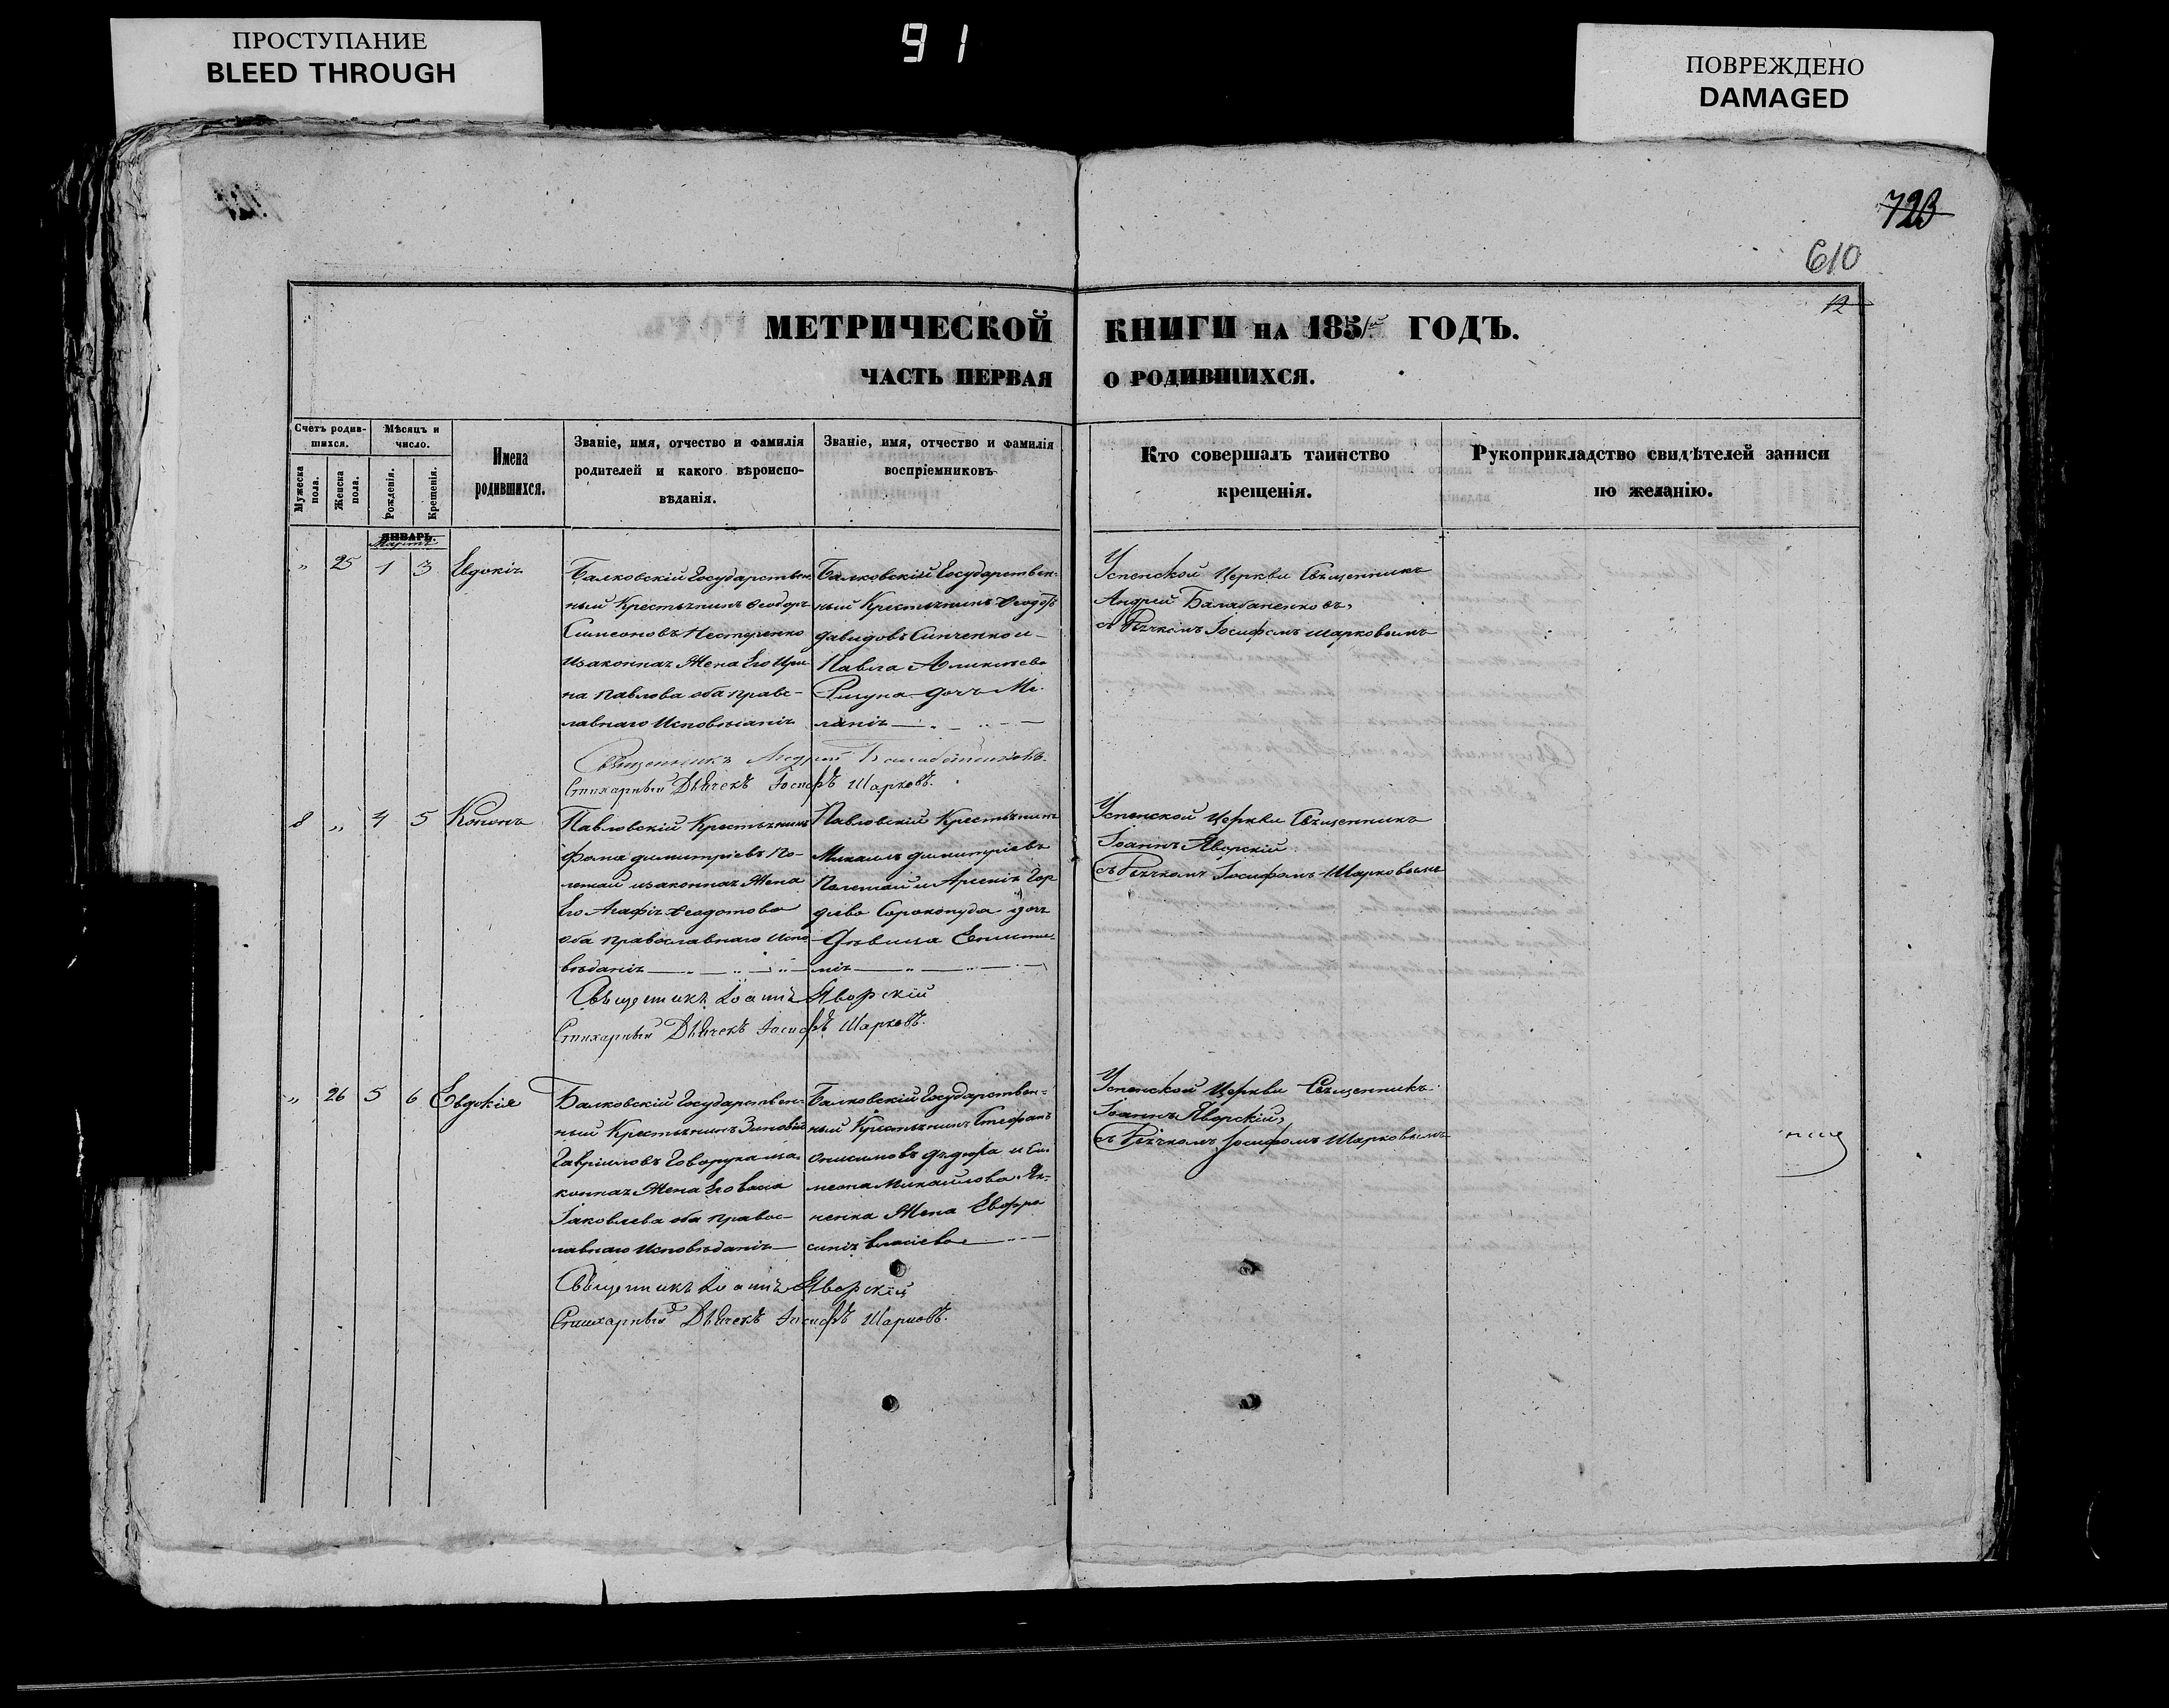 ПРОСТУПАНИЕ
BLEED THROUGH
91
ПОВРЕЖДЕНО
DAMAGED
723
610
12
МЕТРИЧЕСКОЙ КНИГИ НА 185 ГОДЪ.
ЧАСТЬ ПЕРВАЯ О РОДИВШИХСЯ.
Счетъ родив-
шихся.
Мужеска
пола.
Женска
пола.
Мѣсяцъ и
число.
Рожденія.
Крещенія.
Имена
родившихся.
Званіе, имя, отчество и фамилія
родителей и какого вѣроиспо-
вѣданія.
Званіе, имя, отчество и фамилія
воспріемниковъ
Кто совершалъ таинство
крещенія.
Рукоприкладство свидѣтелей записи
по желанію.
ЯНВАРЬ.
Мартъ
„ 25 1 3 Евдокія
Балковскій Государствен-
ный Крестьянинъ Ѳеодоръ
Симеоновъ Нестеренко
изаконная Жена Его Ири-
на Павлова оба право-
лавнаго Исповѣданія
Балковскій Государствен-
ный Крестьянинъ
давидовъ Синченко и
Павла
дочь Ме-
ланія
Успенской Церкви Священникъ
Андрей Балабаненковъ,
съ Дьячкомъ Іосифомъ Шарковымъ
Священникъ Андрей Балабаненковъ
Стихарный Дьячекъ Іосифъ Шарковъ.
8 „ 4 5 Кононъ
Павловскій Крестьянинъ
Фома димитріевъ По-
летай изаконная Жена
Его Агафія Ѳеодотова
оба православнаго Испо-
вѣданія
Павловскій Крестьянинъ
Михаилъ димитріевъ
Полетай и Арсенія Гор
дѣева Сорокопуда дочь
Дѣвица
мія
Успенской Церкви Священникъ
Іоаннъ Яворскій
съ Дьячкомъ Іосифомъ Шарковымъ
Священникъ Іоаннъ Яворскій
Стихарный Дьячекъ Іосифъ Шарковъ.
„ 26 5 6 Евдокія
Балковскій Государствен-
ный Крестьянинъ Зиновій
Гавріиловъ Говоруха иза-
конная Жена Его Васса
Іаковлева оба правос-
лавнаго Исповѣданія
Балковскій Государствен-
ный Крестьянинъ Стефанъ
Онисимовъ и Си-
меона Михайлова
ненка Жена Евфро
синія Власіева
Успенской Церкви Священникъ
Іоаннъ Яворскій,
съ Дьячкомъ Іосифомъ Шарковымъ
Священникъ Іоаннъ Яворскій
Стихарный Дьячекъ Іосифъ Шарковъ.